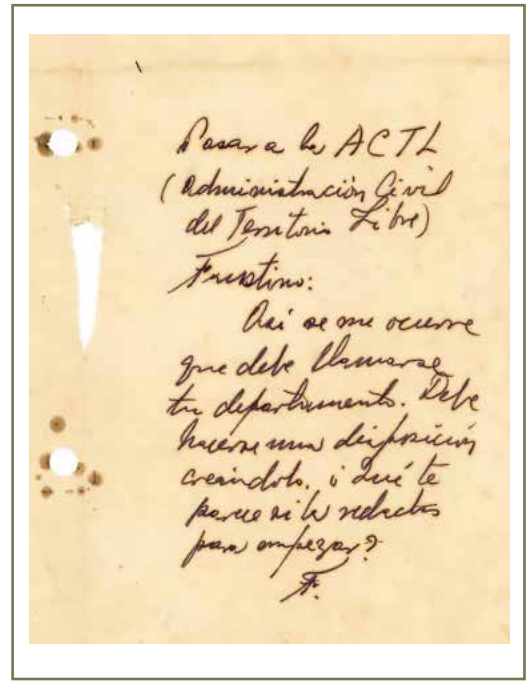 Pasar a la ACTL
(Administración Civil
del Territorio Libre)
Faustino:
Así se me ocurre
que debe llamarse
tu departamento. Debe
hacerse una disposición
creándolo. ¿Qué te
parece si la redactas
para empezar?
F.